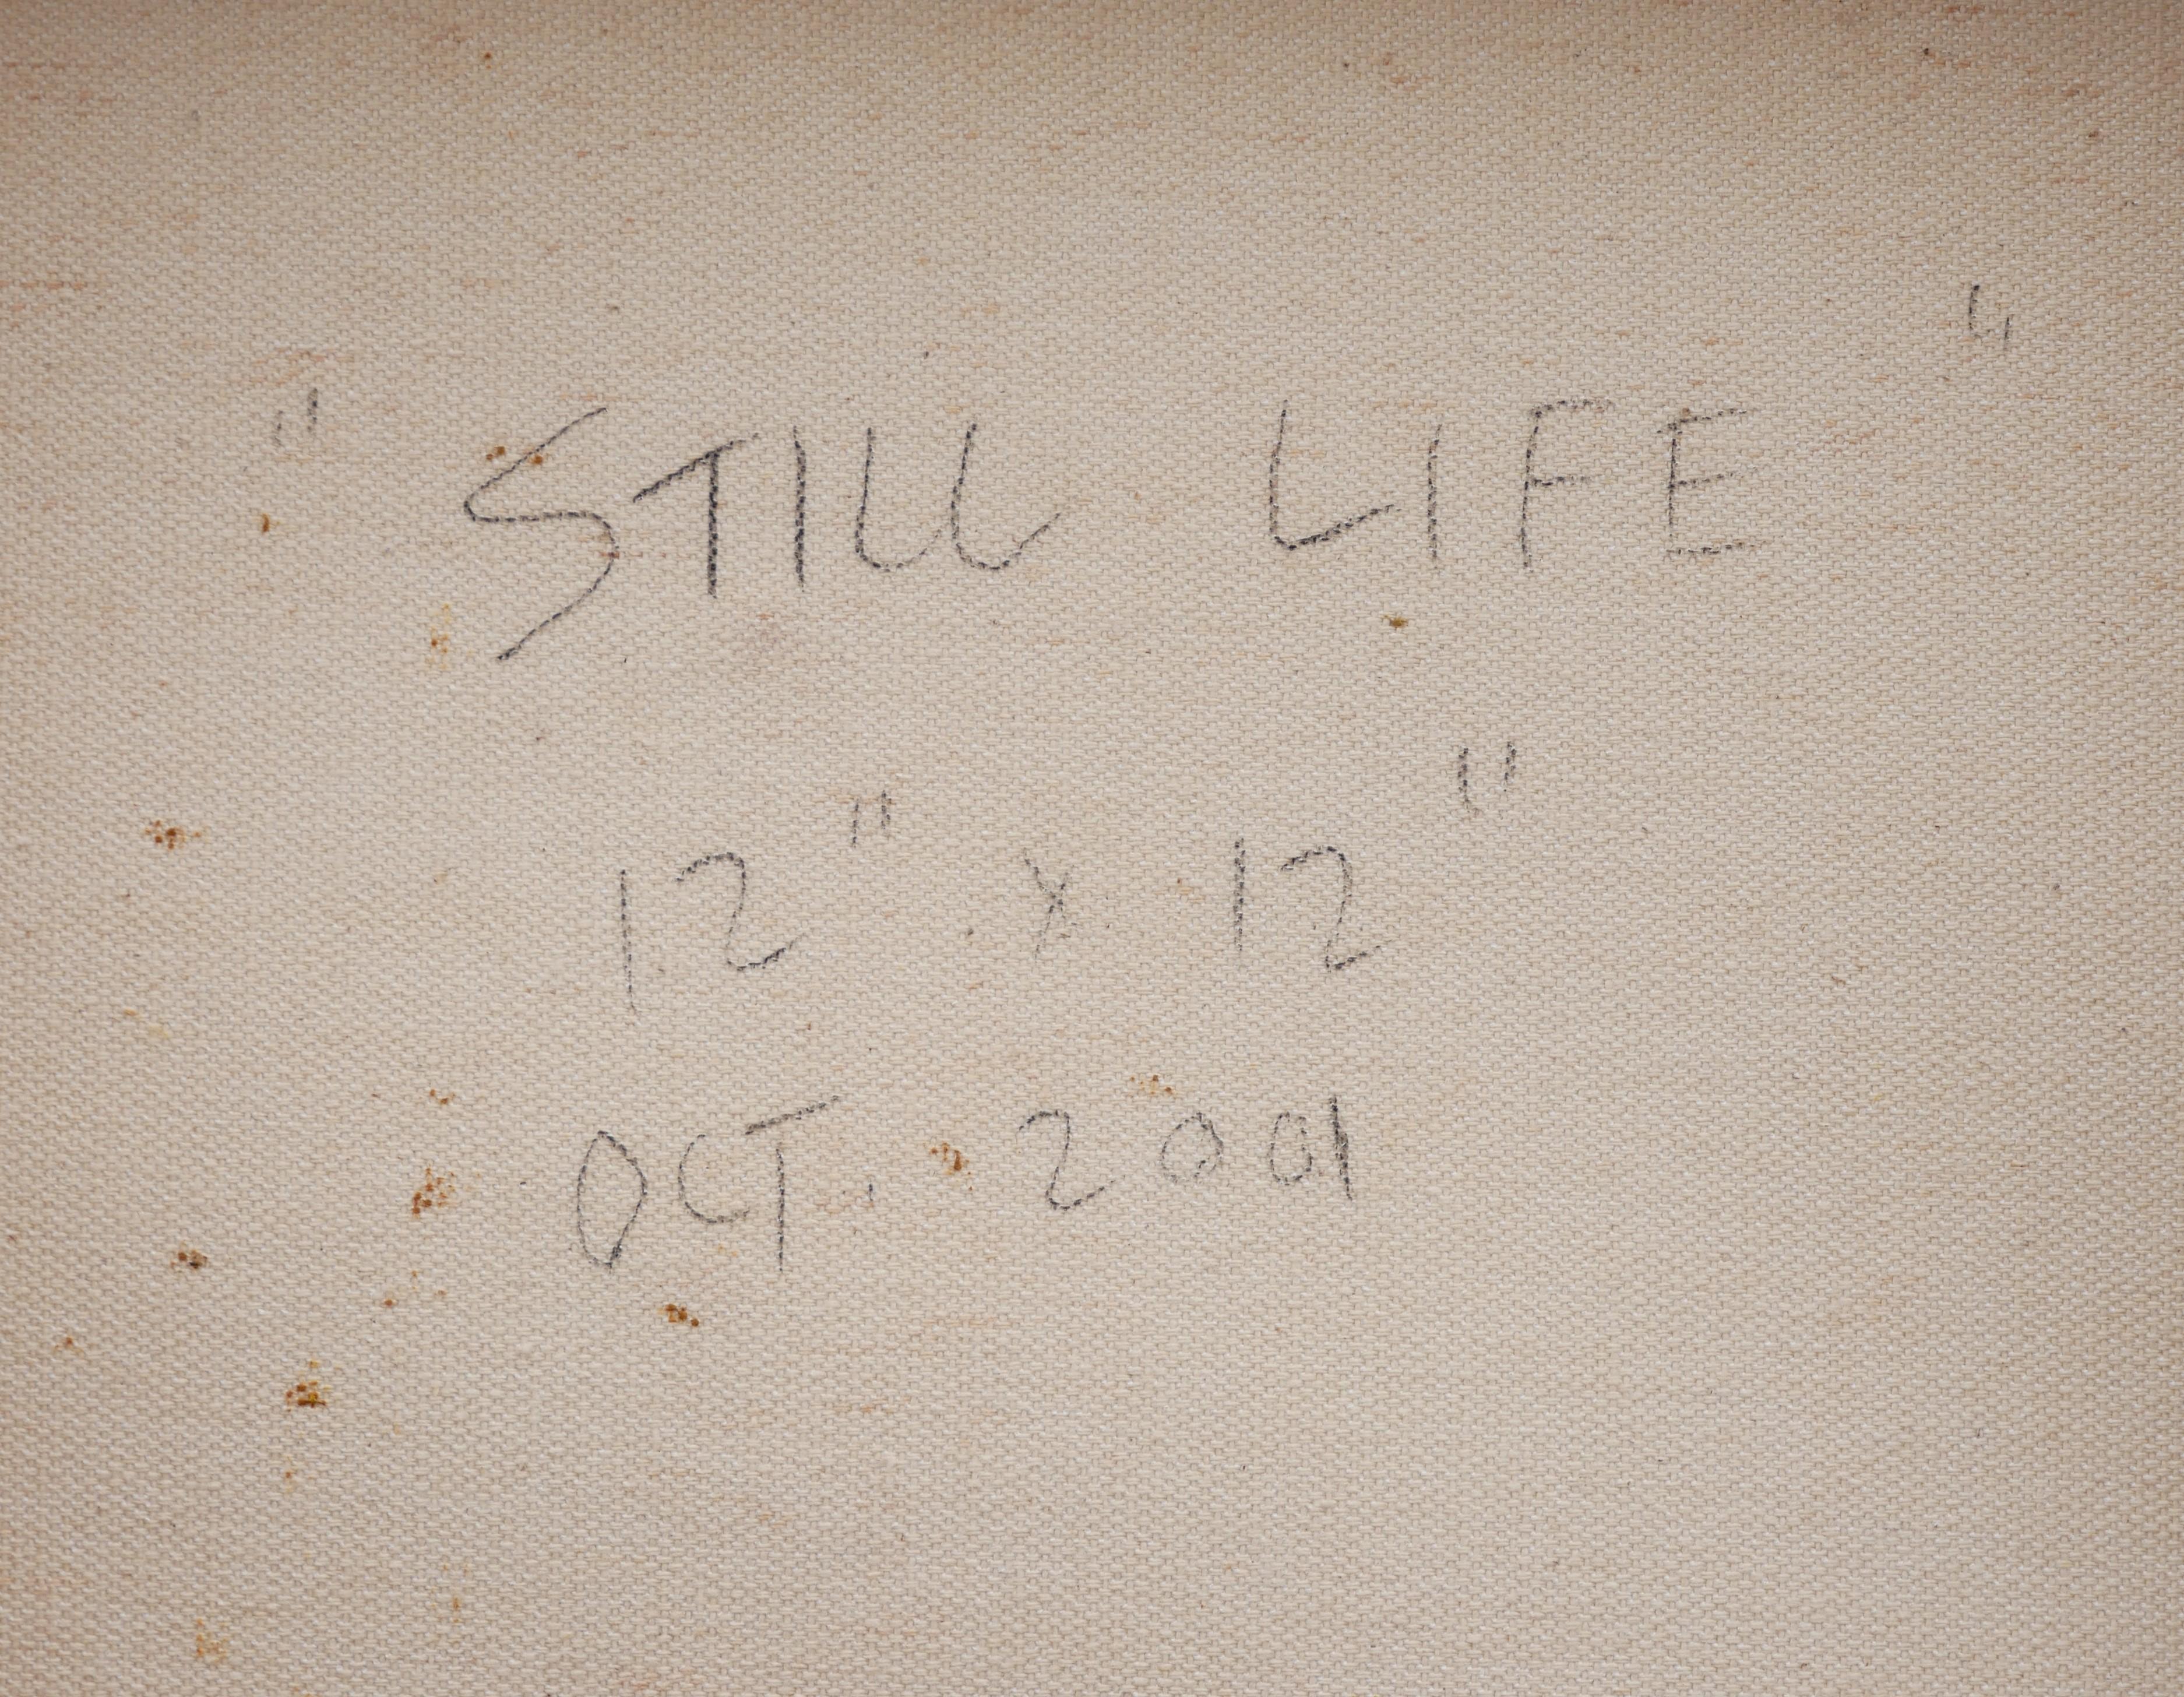 "STILL LIFE"
12" x 12"
OCT. 2001